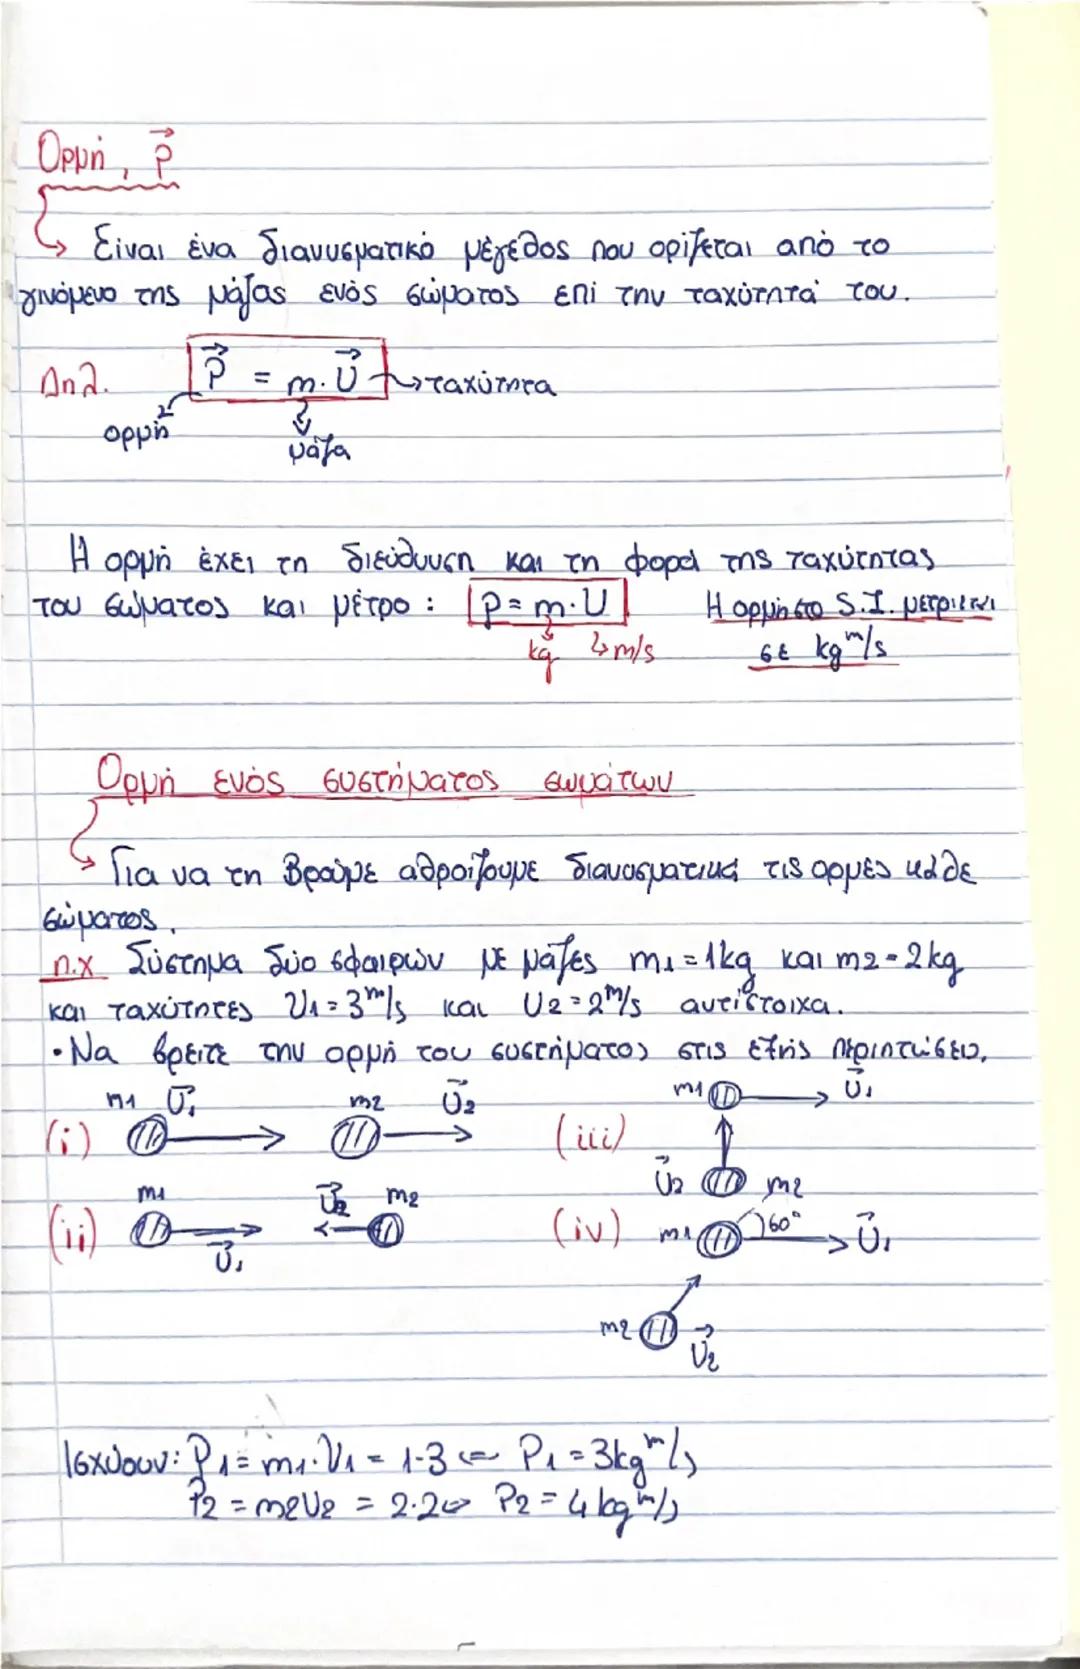 Ορμή, P⃗
Είναι ένα διανυσματικό μέγεθος που ορίζεται από το
γινόμενο της μάζας ενός σώματος επί την ταχύτητά του.
Δηλ. P⃗ = m·υ⃗ → ταχύτητα
ορμή μάζα
Η ορμή έχει τη διεύθυνση και τη φορά της ταχύτητας
του σώματος και μέτρο: P = m·υ Η ορμή στο S.I. μετριέται
kg m/s σε kg m/s
Ορμή ενός συστήματος σωμάτων
Για να τη βρούμε αθροίζουμε διανυσματικά τις ορμές κάθε
σώματος.
π.χ Σύστημα δύο σφαιρών με μάζες m1 = 1kg και m2 = 2kg
και ταχύτητες υ1 = 3m/s και υ2 = 2m/s αντίστοιχα.
• Να βρείτε την ορμή του συστήματος στις εξής περιπτώσεις.
(i) m1 υ⃗1 m2 υ⃗2
(iii) m1 υ⃗1
υ⃗2 m2
(ii) m1 υ⃗1 υ⃗2 m2
(iv) m1 60° υ⃗1
m2 υ⃗2
Ισχύουν: P1 = m1·υ1 = 1·3 ⇔ P1 = 3kg m/s
P2 = m2υ2 = 2·2 ⇔ P2 = 4kg m/s